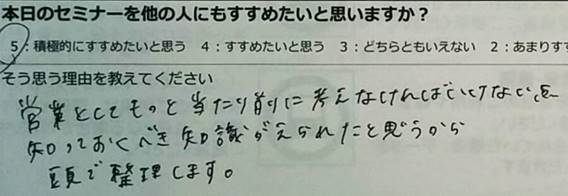 本日のセミナーを他の人にもすすめたいと思いますか？
5：積極的にすすめたいと思う　4：すすめたいと思う　3：どちらともいえない　2：あまりすす
そう思う理由を教えてください
営業としてもっと当たり前に考えなければいけない点
知っておくべき知識がえられたと思うから
頭で整理します。